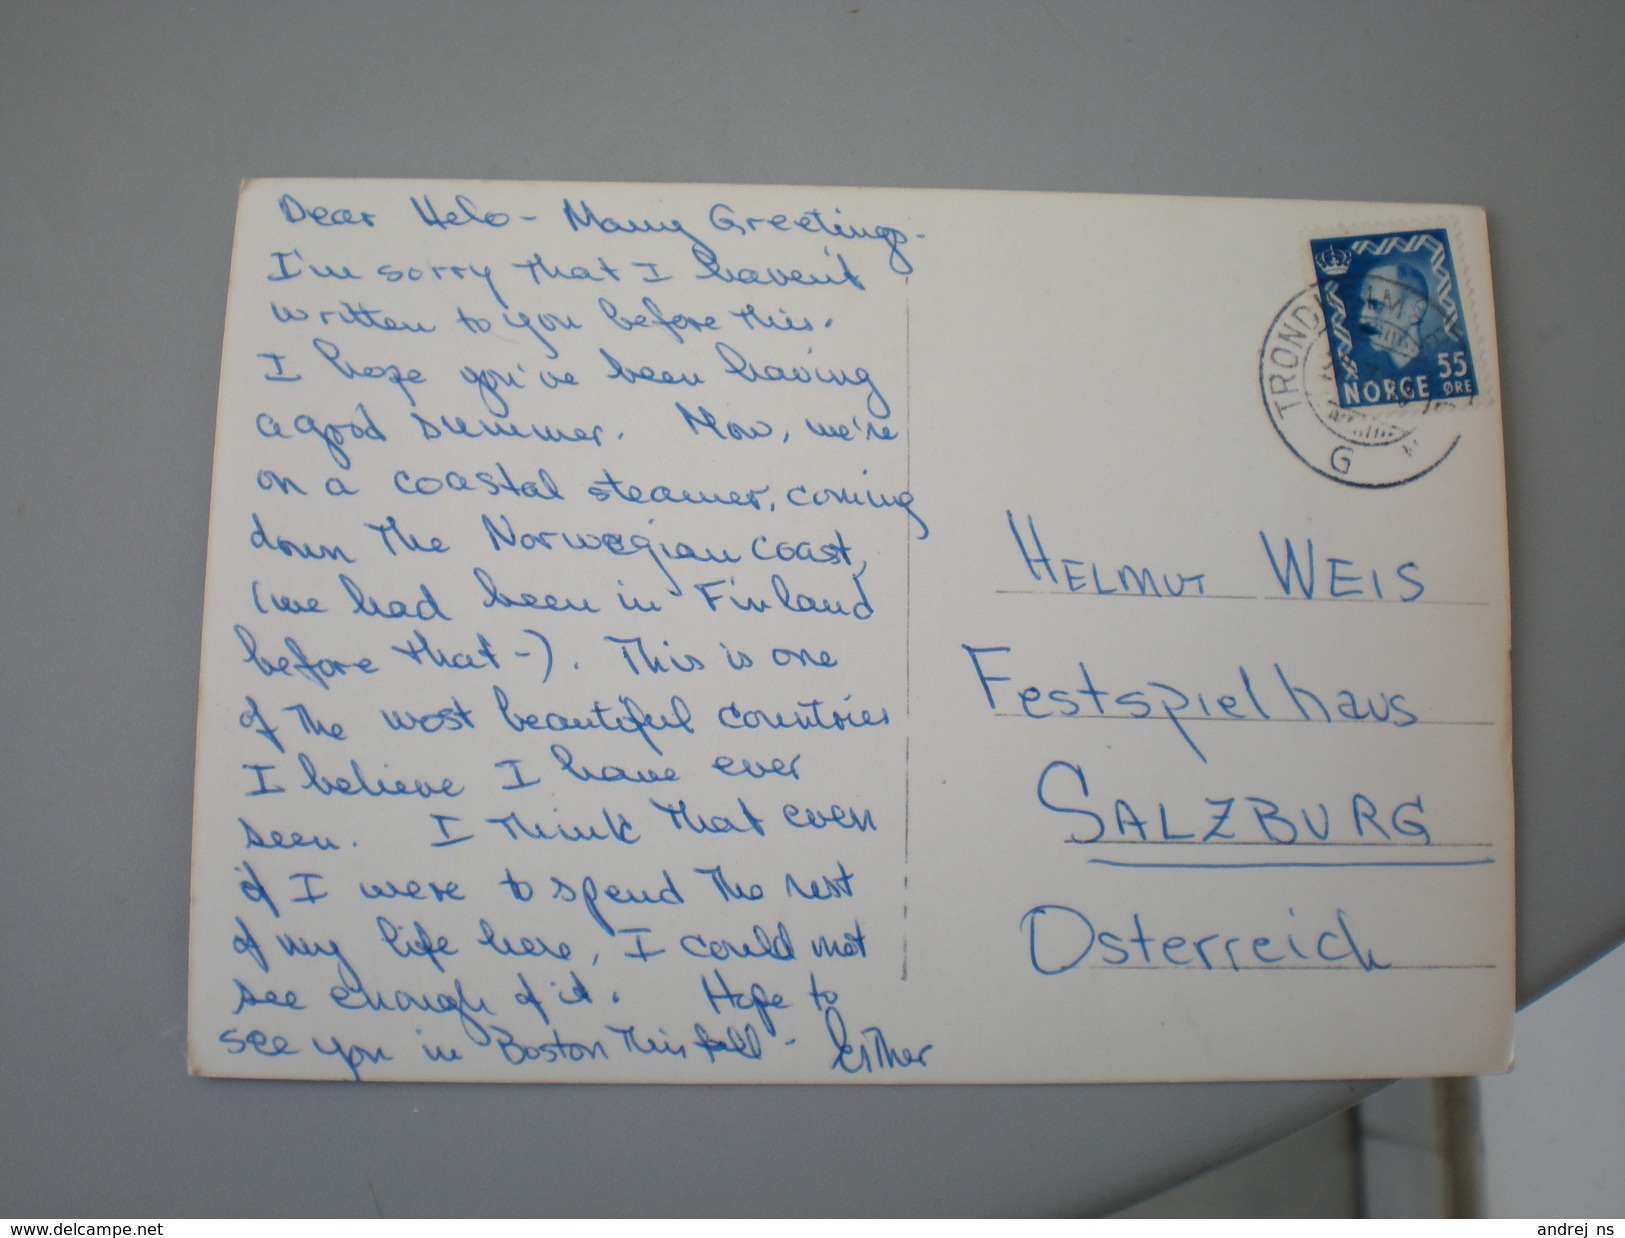 Dear Helo - Many Greetings -
I'm sorry that I haven't
written to you before this.
I hope you've been having
a good summer. Now, we're
on a coastal steamer, coming
down the Norwegian coast,
(we had been in Finland
before that -). This is one
of the most beautiful countries
I believe I have ever
seen. I think that even
if I were to spend the rest
of my life here, I could not
see enough of it. Hope to
see you in Boston this fall - Esther
TROND
G
55
ØRE
NORGE
HELMUT WEIS
Festspielhaus
SALZBURG
Osterreich
www.delcampe.net
andrej ns